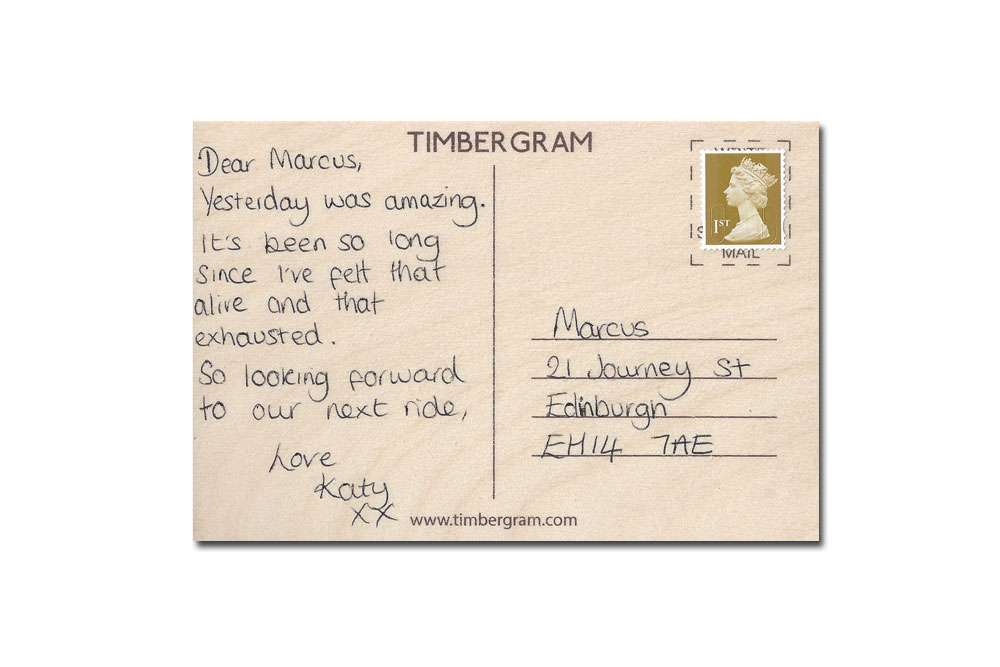 TIMBERGRAM
Dear Marcus,
Yesterday was amazing.
It's been so long
since I've felt that
alive and that
exhausted.
So looking forward
to our next ride,
Love
Katy
XX
1ST
MAIL
Marcus
21 Journey St
Edinburgh
EH14 7AE
www.timbergram.com